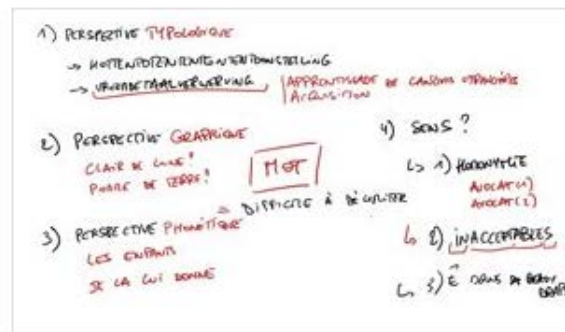 1) PERSPECTIVE TYPOLOGIQUE
→ HOTTENTOTENTENTENTENTOONSTELLING
→ VREEMDETAALVERWERVING
APPRENTISSAGE DE LANGUE ETRANGÈRE
ACQUISITION
2) PERSPECTIVE GRAPHIQUE
CLAIR DE LUNE!
POMME DE TERRE!
MOT
= DIFFICILE À DÉLIMITER
3) PERSPECTIVE PHONÉTIQUE
LES ENFANTS
JE LA LUI DONNE
4) SENS?
↳ 1) HOMONYMIE
AVOCAT (1)
AVOCAT (2)
↳ 2) INACCEPTABLES
↳ 3) DANS DE BEAUX
DRAPS